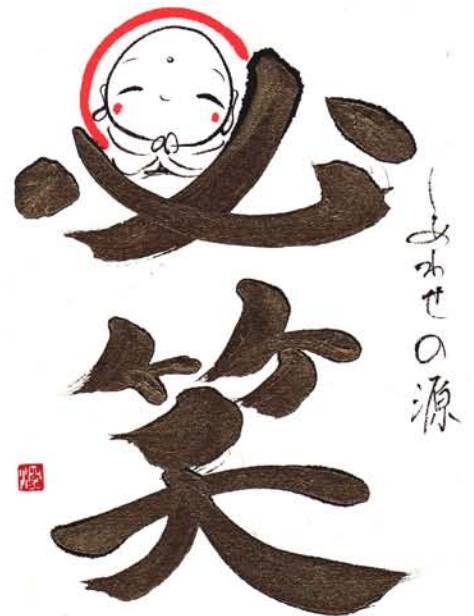 必笑
しあわせの源